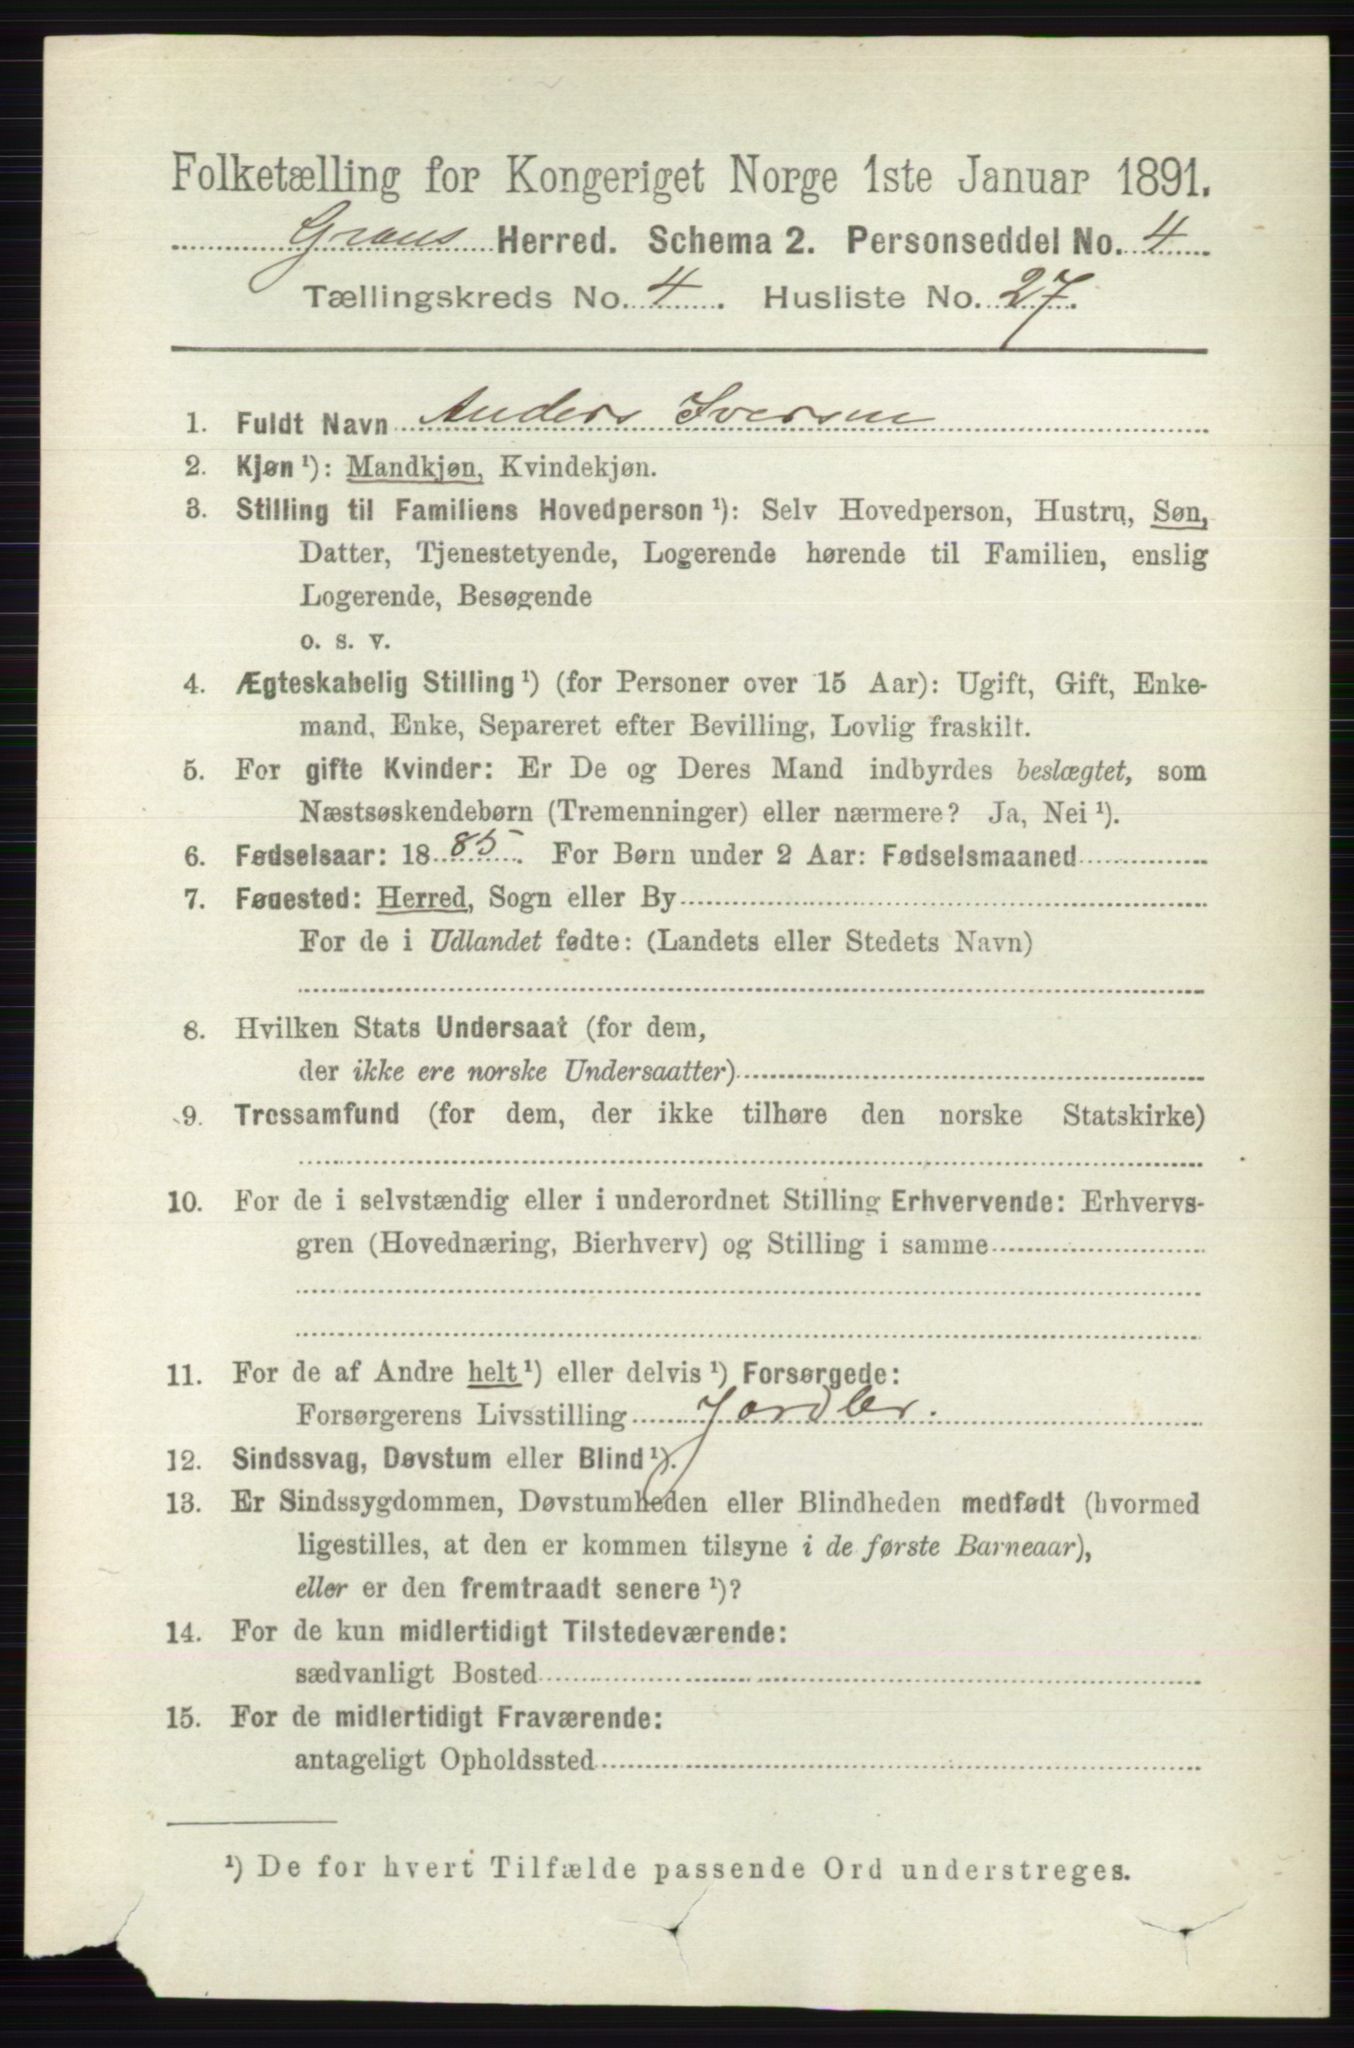 Folketælling for Kongeriget Norge 1ste Januar 1891.
Grans Herred. Schema 2. Personseddel No. 4
Tællingskreds No. 4. Husliste No. 27.
1. Fuldt Navn Anders Iversen
2. Kjøn¹): Mandkjøn, Kvindekjøn.
3. Stilling til Familiens Hovedperson¹): Selv Hovedperson, Hustru, Søn,
Datter, Tjenestetyende, Logerende hørende til Familien, enslig
Logerende, Besøgende
o. s. v.
4. Ægteskabelig Stilling¹) (for Personer over 15 Aar): Ugift, Gift, Enke-
mand, Enke, Separeret efter Bevilling, Lovlig fraskilt.
5. For gifte Kvinder: Er De og Deres Mand indbyrdes beslægtet, som
Næstsøskendebørn (Tremenninger) eller nærmere? Ja, Nei¹).
6. Fødselsaar: 1885. For Børn under 2 Aar: Fødselsmaaned
7. Føuested: Herred, Sogn eller By
For de i Udlandet fødte: (Landets eller Stedets Navn)
8. Hvilken Stats Undersaat (for dem,
der ikke ere norske Undersaatter)
9. Trossamfund (for dem, der ikke tilhøre den norske Statskirke)
10. For de i selvstændig eller i underordnet Stilling Erhvervende: Erhvervs-
gren (Hovednæring, Bierhverv) og Stilling i samme
11. For de af Andre helt¹) eller delvis¹) Forsørgede:
Forsørgerens Livsstilling Jordbr.
12. Sindssvag, Døvstum eller Blind¹).
13. Er Sindssygdommen, Døvstumheden eller Blindheden medfødt (hvormed
ligestilles, at den er kommen tilsyne i de første Barneaar),
eller er den fremtraadt senere¹)?
14. For de kun midlertidigt Tilstedeværende:
sædvanligt Bosted
15. For de midlertidigt Fraværende:
antageligt Opholdssted
¹) De for hvert Tilfælde passende Ord understreges.